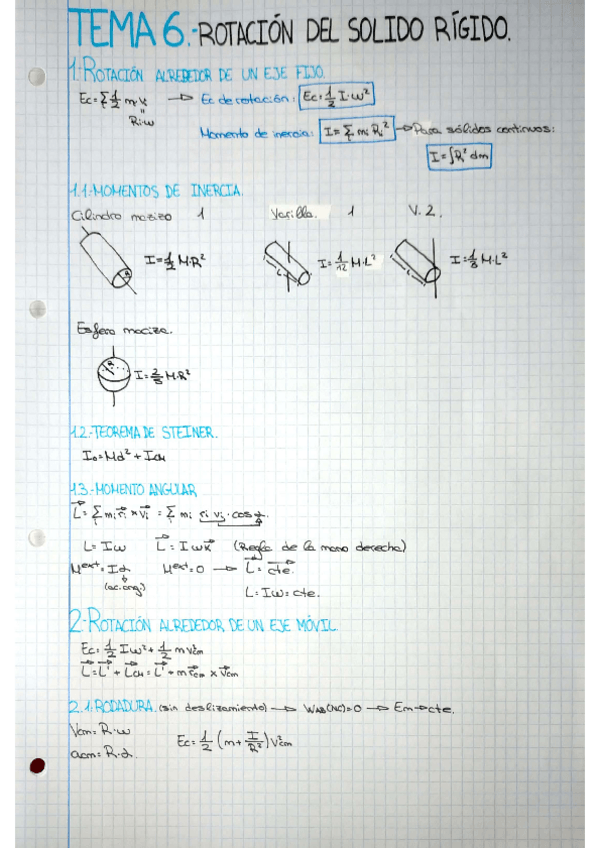 TEMA 6.-ROTACIÓN DEL SOLIDO RÍGIDO.
1.-ROTACIÓN ALREDEDOR DE UN EJE FIJO.
Ec=Σ½ mᵢ vᵢ → Ec de rotación: Ec=½ I·ω²
Ri·ω
Momento de inercia: I=Σ mᵢ Rᵢ² → Para sólidos continuos:
I=∫R² dm
1.1-MOMENTOS DE INERCIA.
Cilindro macizo 1 Varilla. 1 V. 2.
I=½ M·R² I=1/12 M·L² I=⅓ M·L²
Esfera maciza.
I=2/5 M·R²
1.2.-TEOREMA DE STEINER.
I₀=Md²+Icm
1.3.-MOMENTO ANGULAR
L = Iω L = IωK (Regla de la mano derecha)
Mext=Iα Mext=0 → L = cte.
(ac.ang.)
L=Iω=cte.
2-ROTACIÓN ALREDEDOR DE UN EJE MÓVIL
Ec=½ Iω²+½ mv²cm
L=L'+Lcm=L'+m rcm x vcm
2.1.RODADURA. (sin deslizamiento) → WAB(NC)=0 → Em→cte.
Vcm=R·ω
acm=R·α
Ec=½ (m+I/R²)V²cm